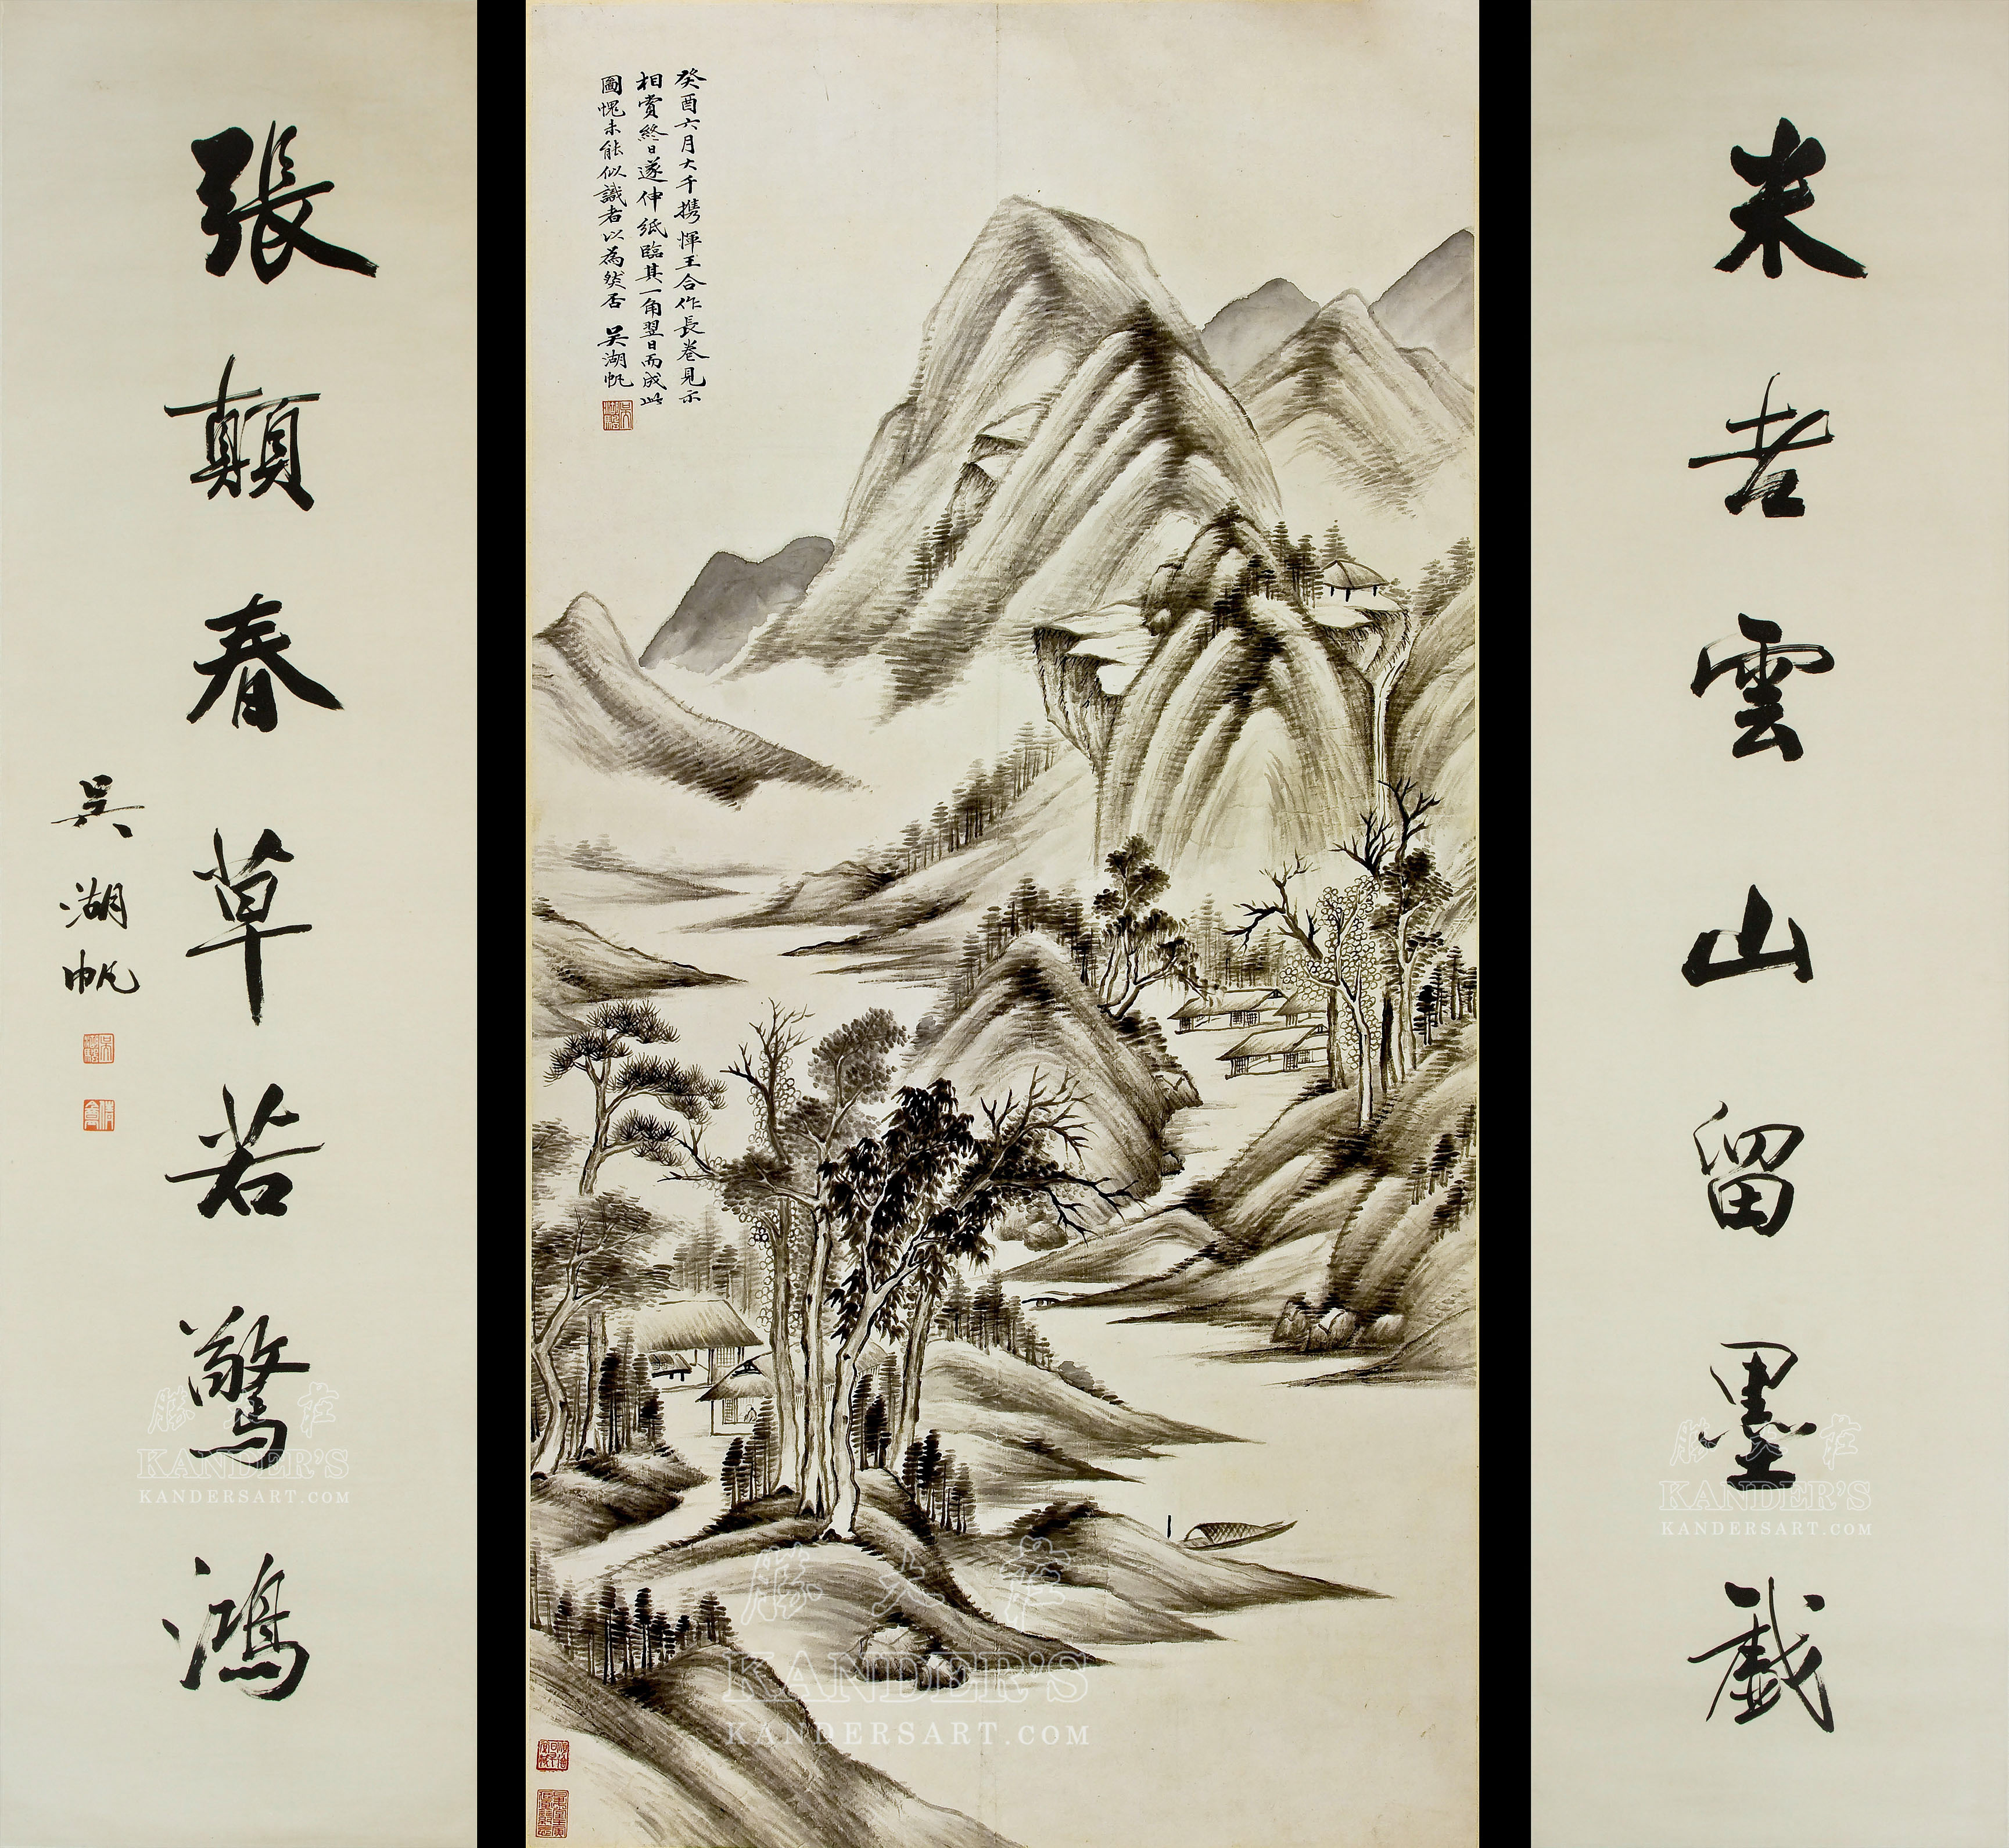 米老雲山留墨戲
癸酉六月大千攜惲王合作長卷見示
相賞終日遂伸紙臨其一角翌日而成此
圖愧未能似識者以為然否 吳湖帆
張顛春草若驚鴻
吳湖帆
勝大莊
KANDER'S
KANDERSART.COM
勝大莊
KANDER'S
KANDERSART.COM
勝大莊
KANDER'S
KANDERSART.COM